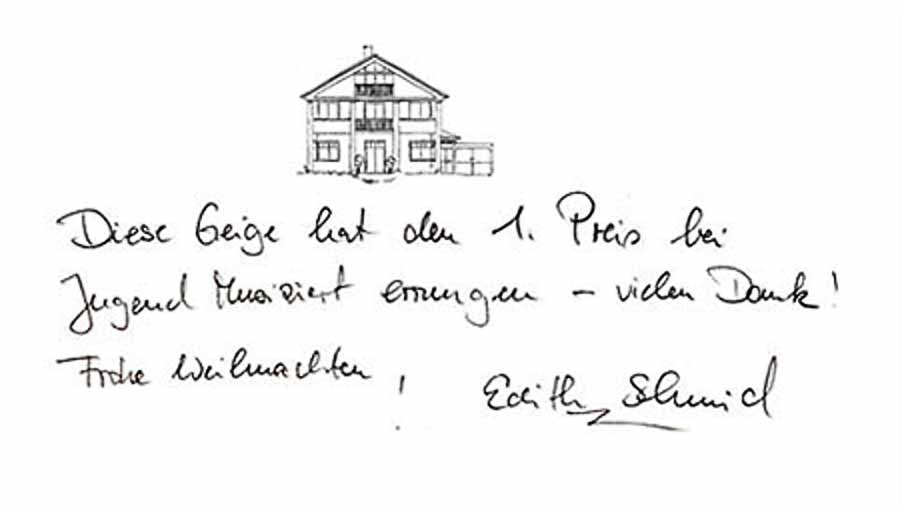 Diese Geige hat den 1. Preis bei
Jugend Musiziert errungen – vielen Dank!
Frohe Weihnachten!
Edith Schmid